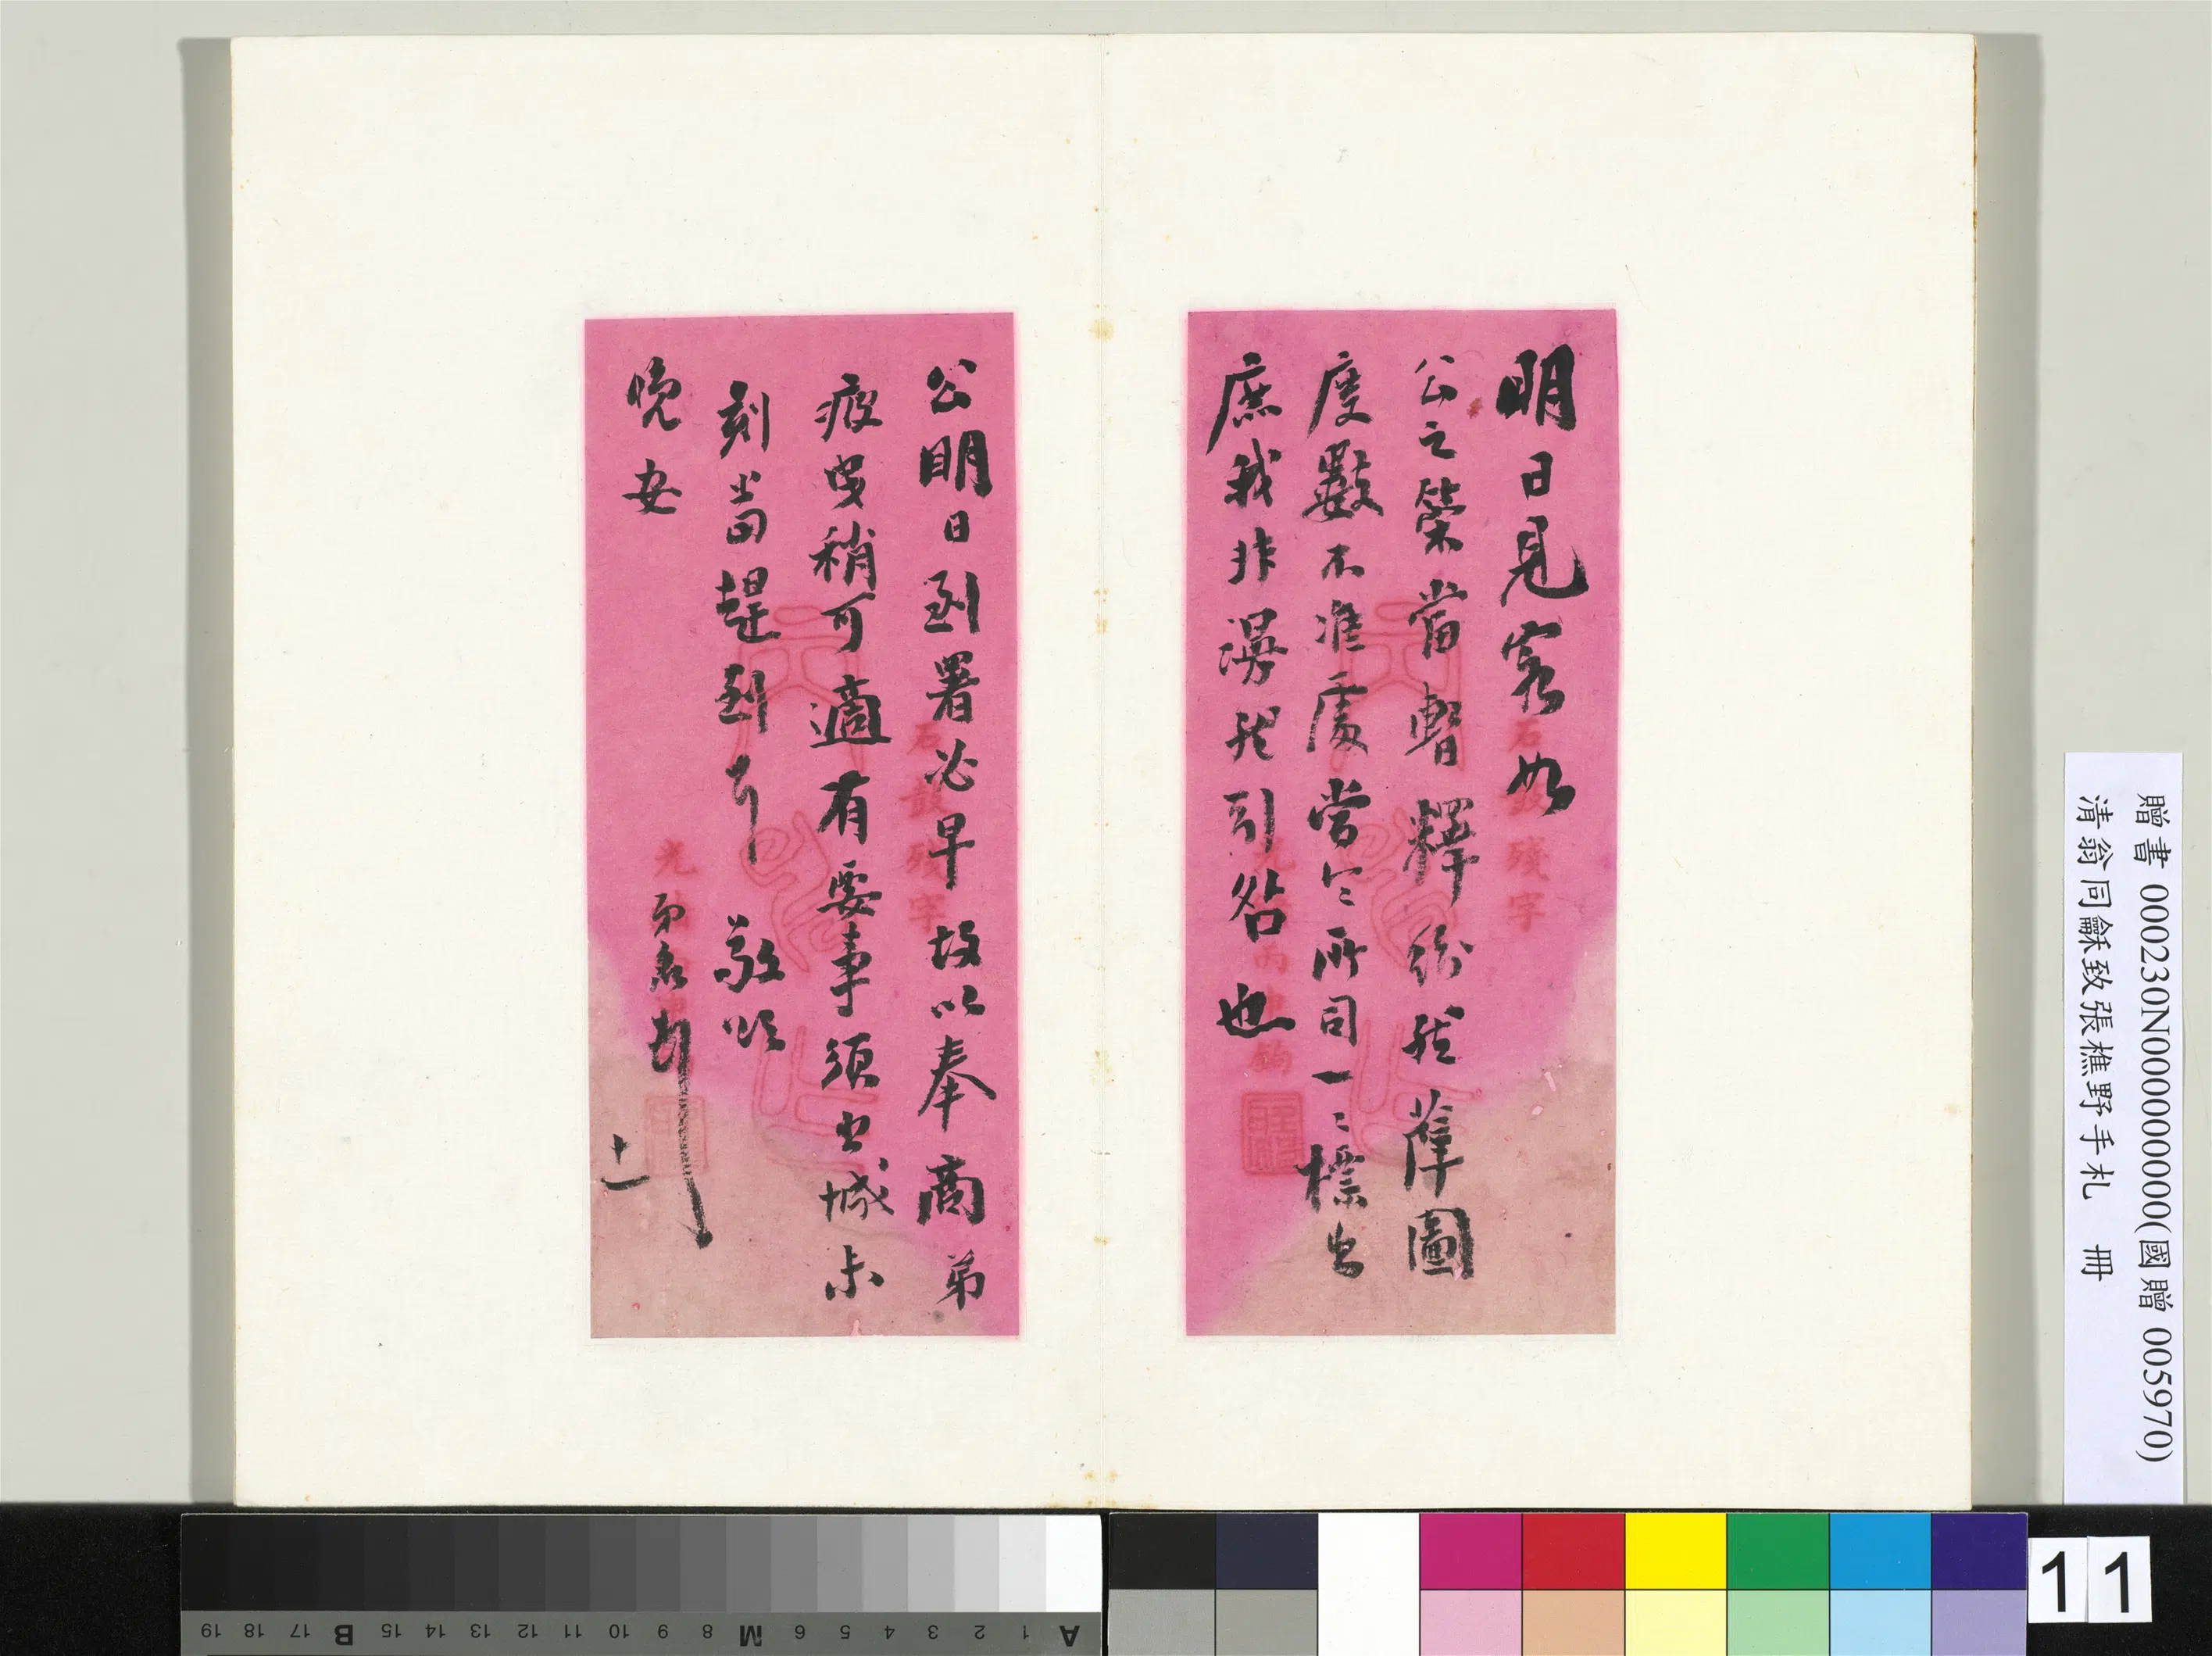 明日見客如
公之策當暫釋紛然薛圖
度數不準處當令所司一一標出
庶我非漫然引咎也
石鼓殘字
公明日到署必早故以奉商弟
疲曳稍可適有要事須出城未
刻當趕到耳 敬頌
晚安
弟名頓首
十一
石鼓殘字
贈書 000230N000000000(國贈 005970)
清翁同龢致張樵野手札 冊
11
A 1 2 3 4 5 6 M 8 9 10 11 12 13 14 15 B 17 18 19